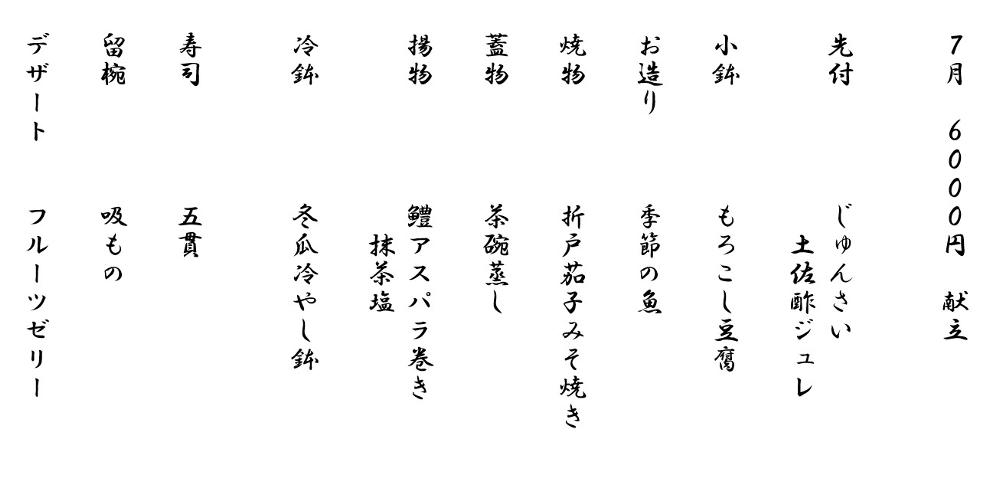 7月　6000円　献立
先付　じゅんさい
土佐酢ジュレ
小鉢　もろこし豆腐
お造り　季節の魚
焼物　折戸茄子みそ焼き
蓋物　茶碗蒸し
揚物　鱧アスパラ巻き
抹茶塩
冷鉢　冬瓜冷やし鉢
寿司　五貫
留椀　吸もの
デザート　フルーツゼリー